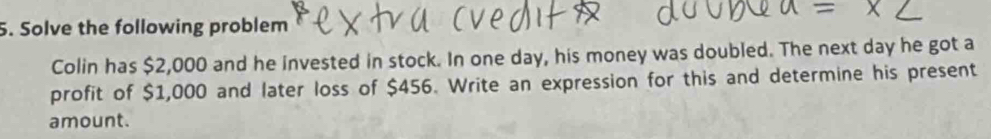 5. Solve the following problem *extra credit* doubled = x2
Colin has $2,000 and he invested in stock. In one day, his money was doubled. The next day he got a
profit of $1,000 and later loss of $456. Write an expression for this and determine his present
amount.